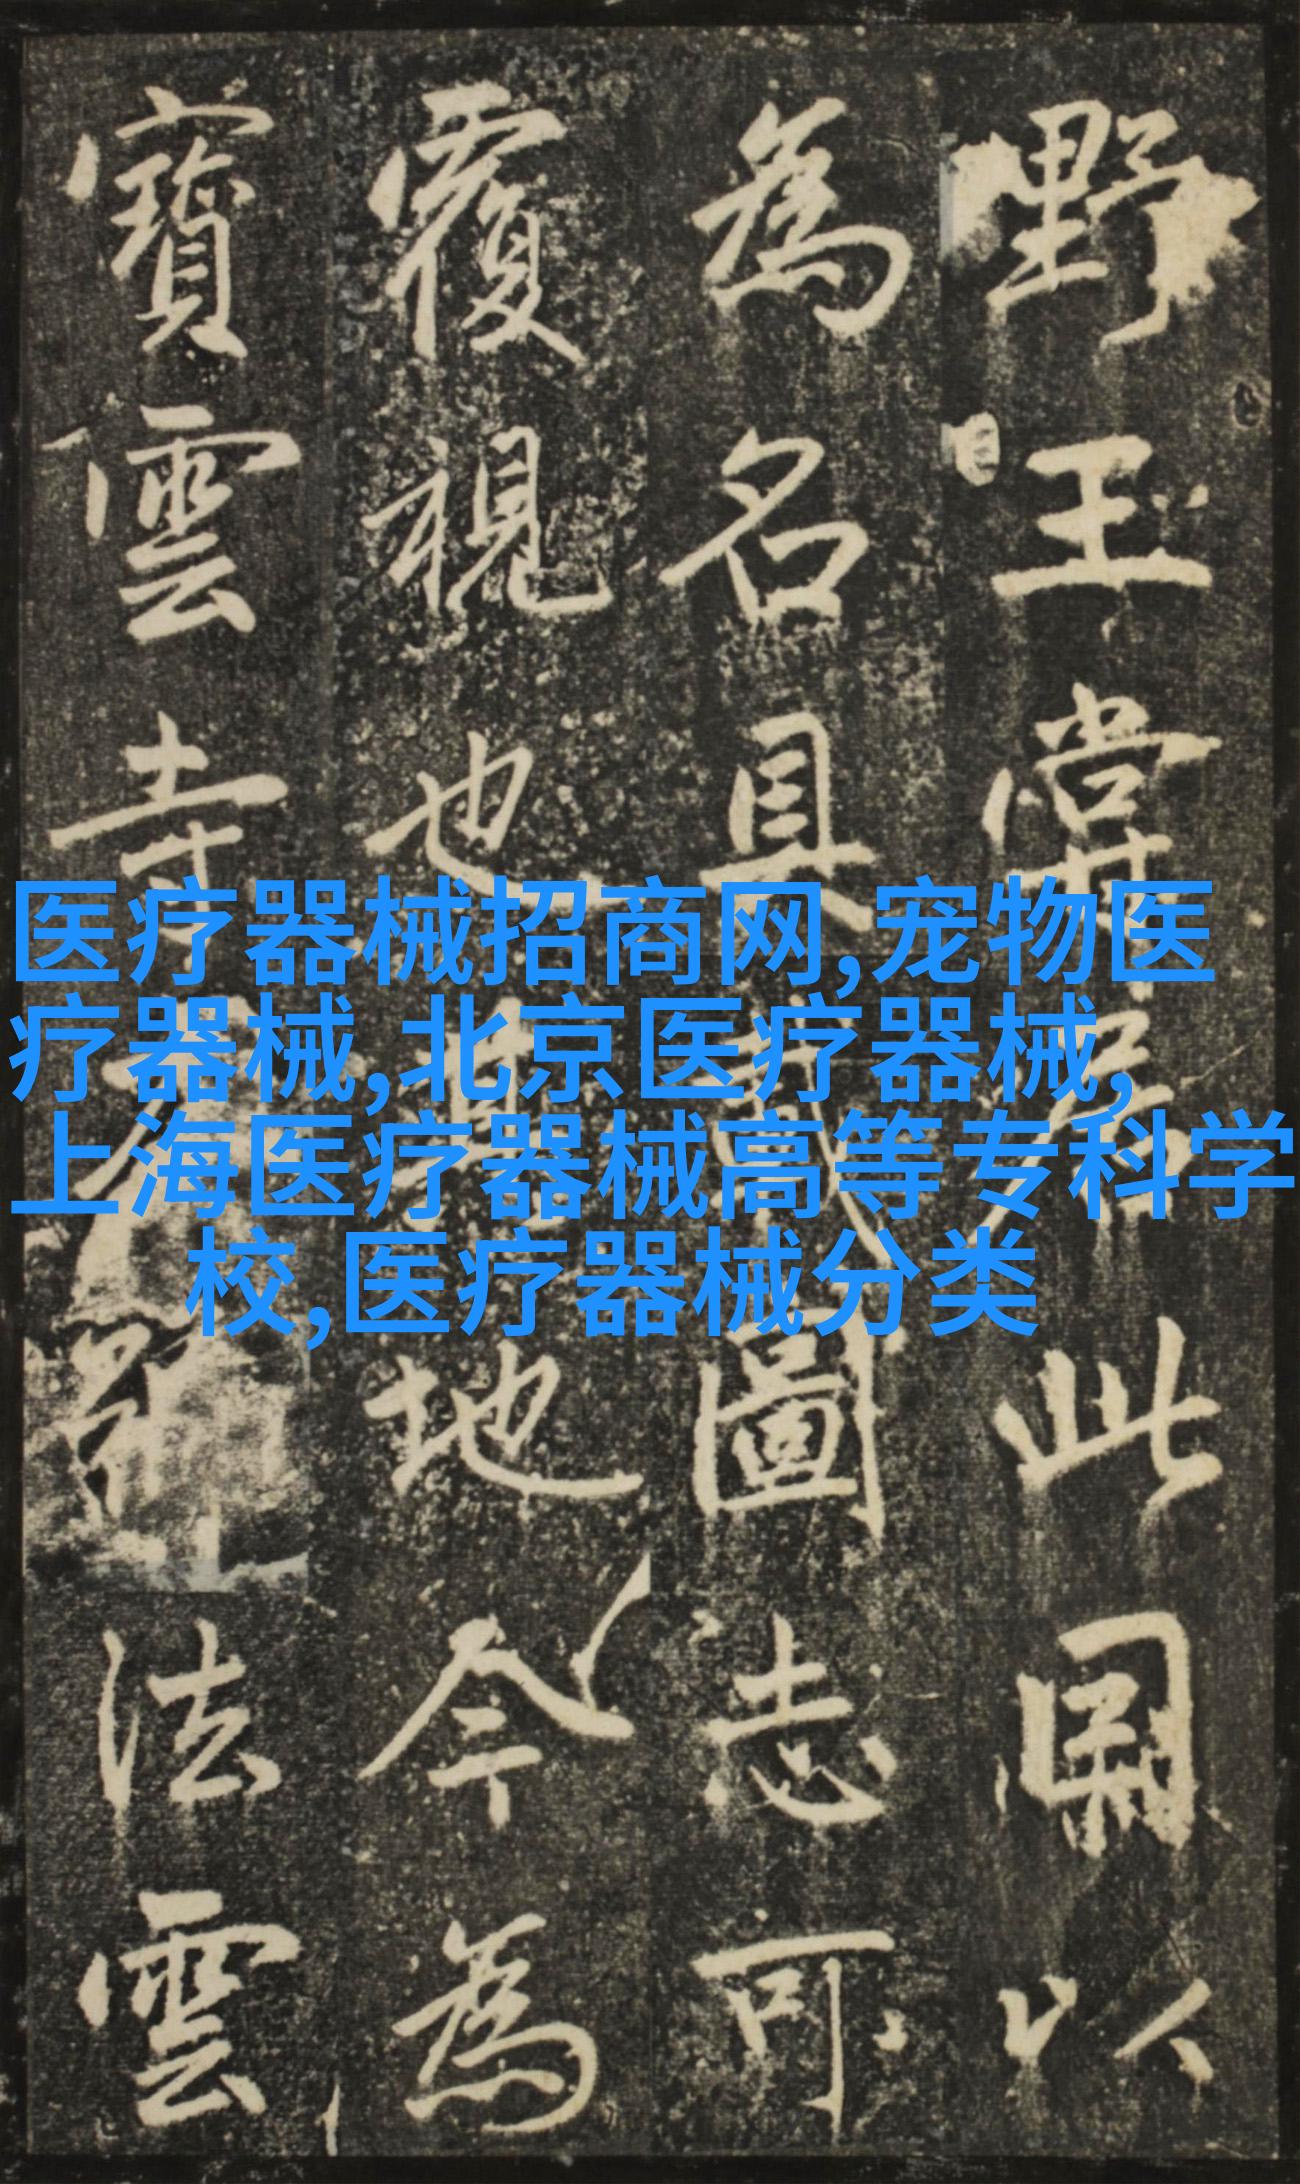 野王嘗居此以
為名具載圖志可
覆視也其地今為
寶雲寺法雲
医疗器械招商网,宠物医
疗器械,北京医疗器械,
上海医疗器械高等专科学
校,医疗器械分类